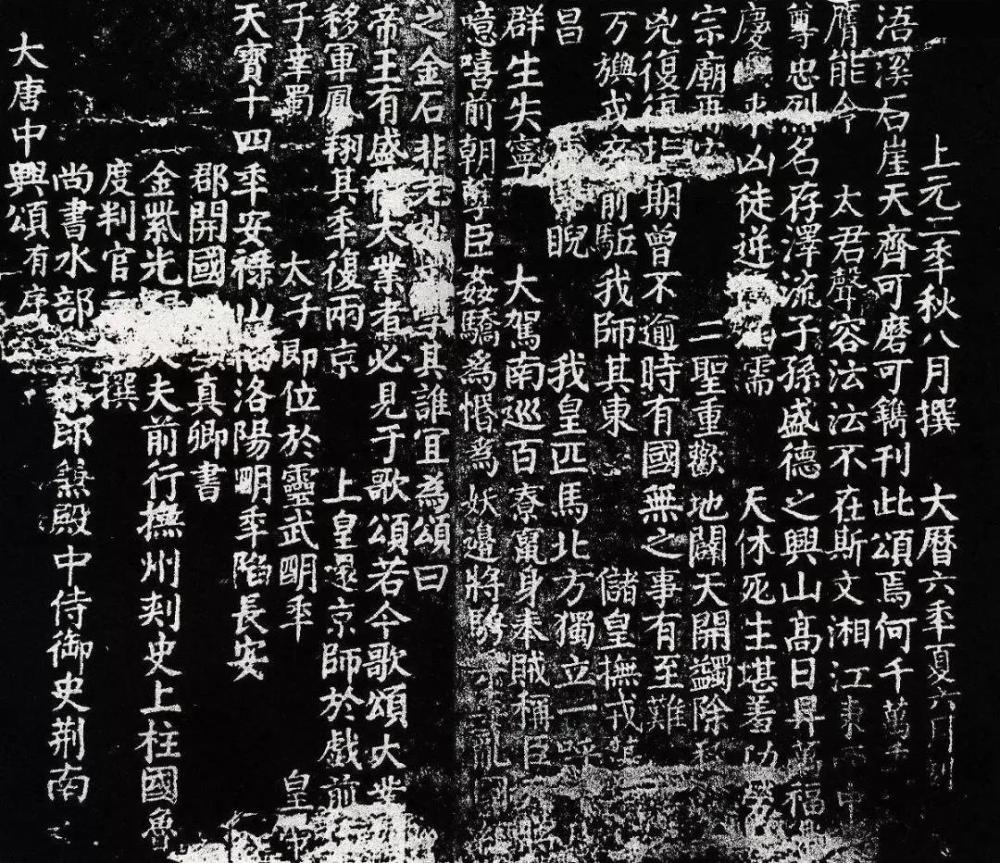 大唐中興頌有序
尚書水部郎兼殿中侍御史荆南
度判官撰
金紫光大夫前行撫州刾史上柱國魯
郡開國真卿書
天寶十四年安祿山陷洛陽明年陷長安
子幸蜀 太子即位於靈武明年 皇帝
移軍鳳翔其年復兩京 上皇還京師於戲前
帝王有盛德大業者必見于歌頌若今歌頌大業
之金石非老於文學其誰宜為頌曰
噫嘻前朝孽臣姦驕為惛為妖邊將騁亂國
群生失寧 大駕南巡百寮竄身奉賊稱臣將
昌睨 我皇匹馬北方獨立一呼
万旟戎卒前駈我師其東 儲皇撫戎蕩
兇復復指期曾不逾時有國無之事有至難
宗廟再安 二聖重歡地闢天開蠲除
慶來凶徒逆濡 天休死生堪羞功勞
尊忠烈名存澤流子孫盛德之興山高日昇萬福
膺能令 太君聲容沄沄不在斯文湘江東西中
浯溪石崖天齊可磨可鐫刊此頌焉何千萬年
上元二年秋八月撰 大曆六年夏六月刻